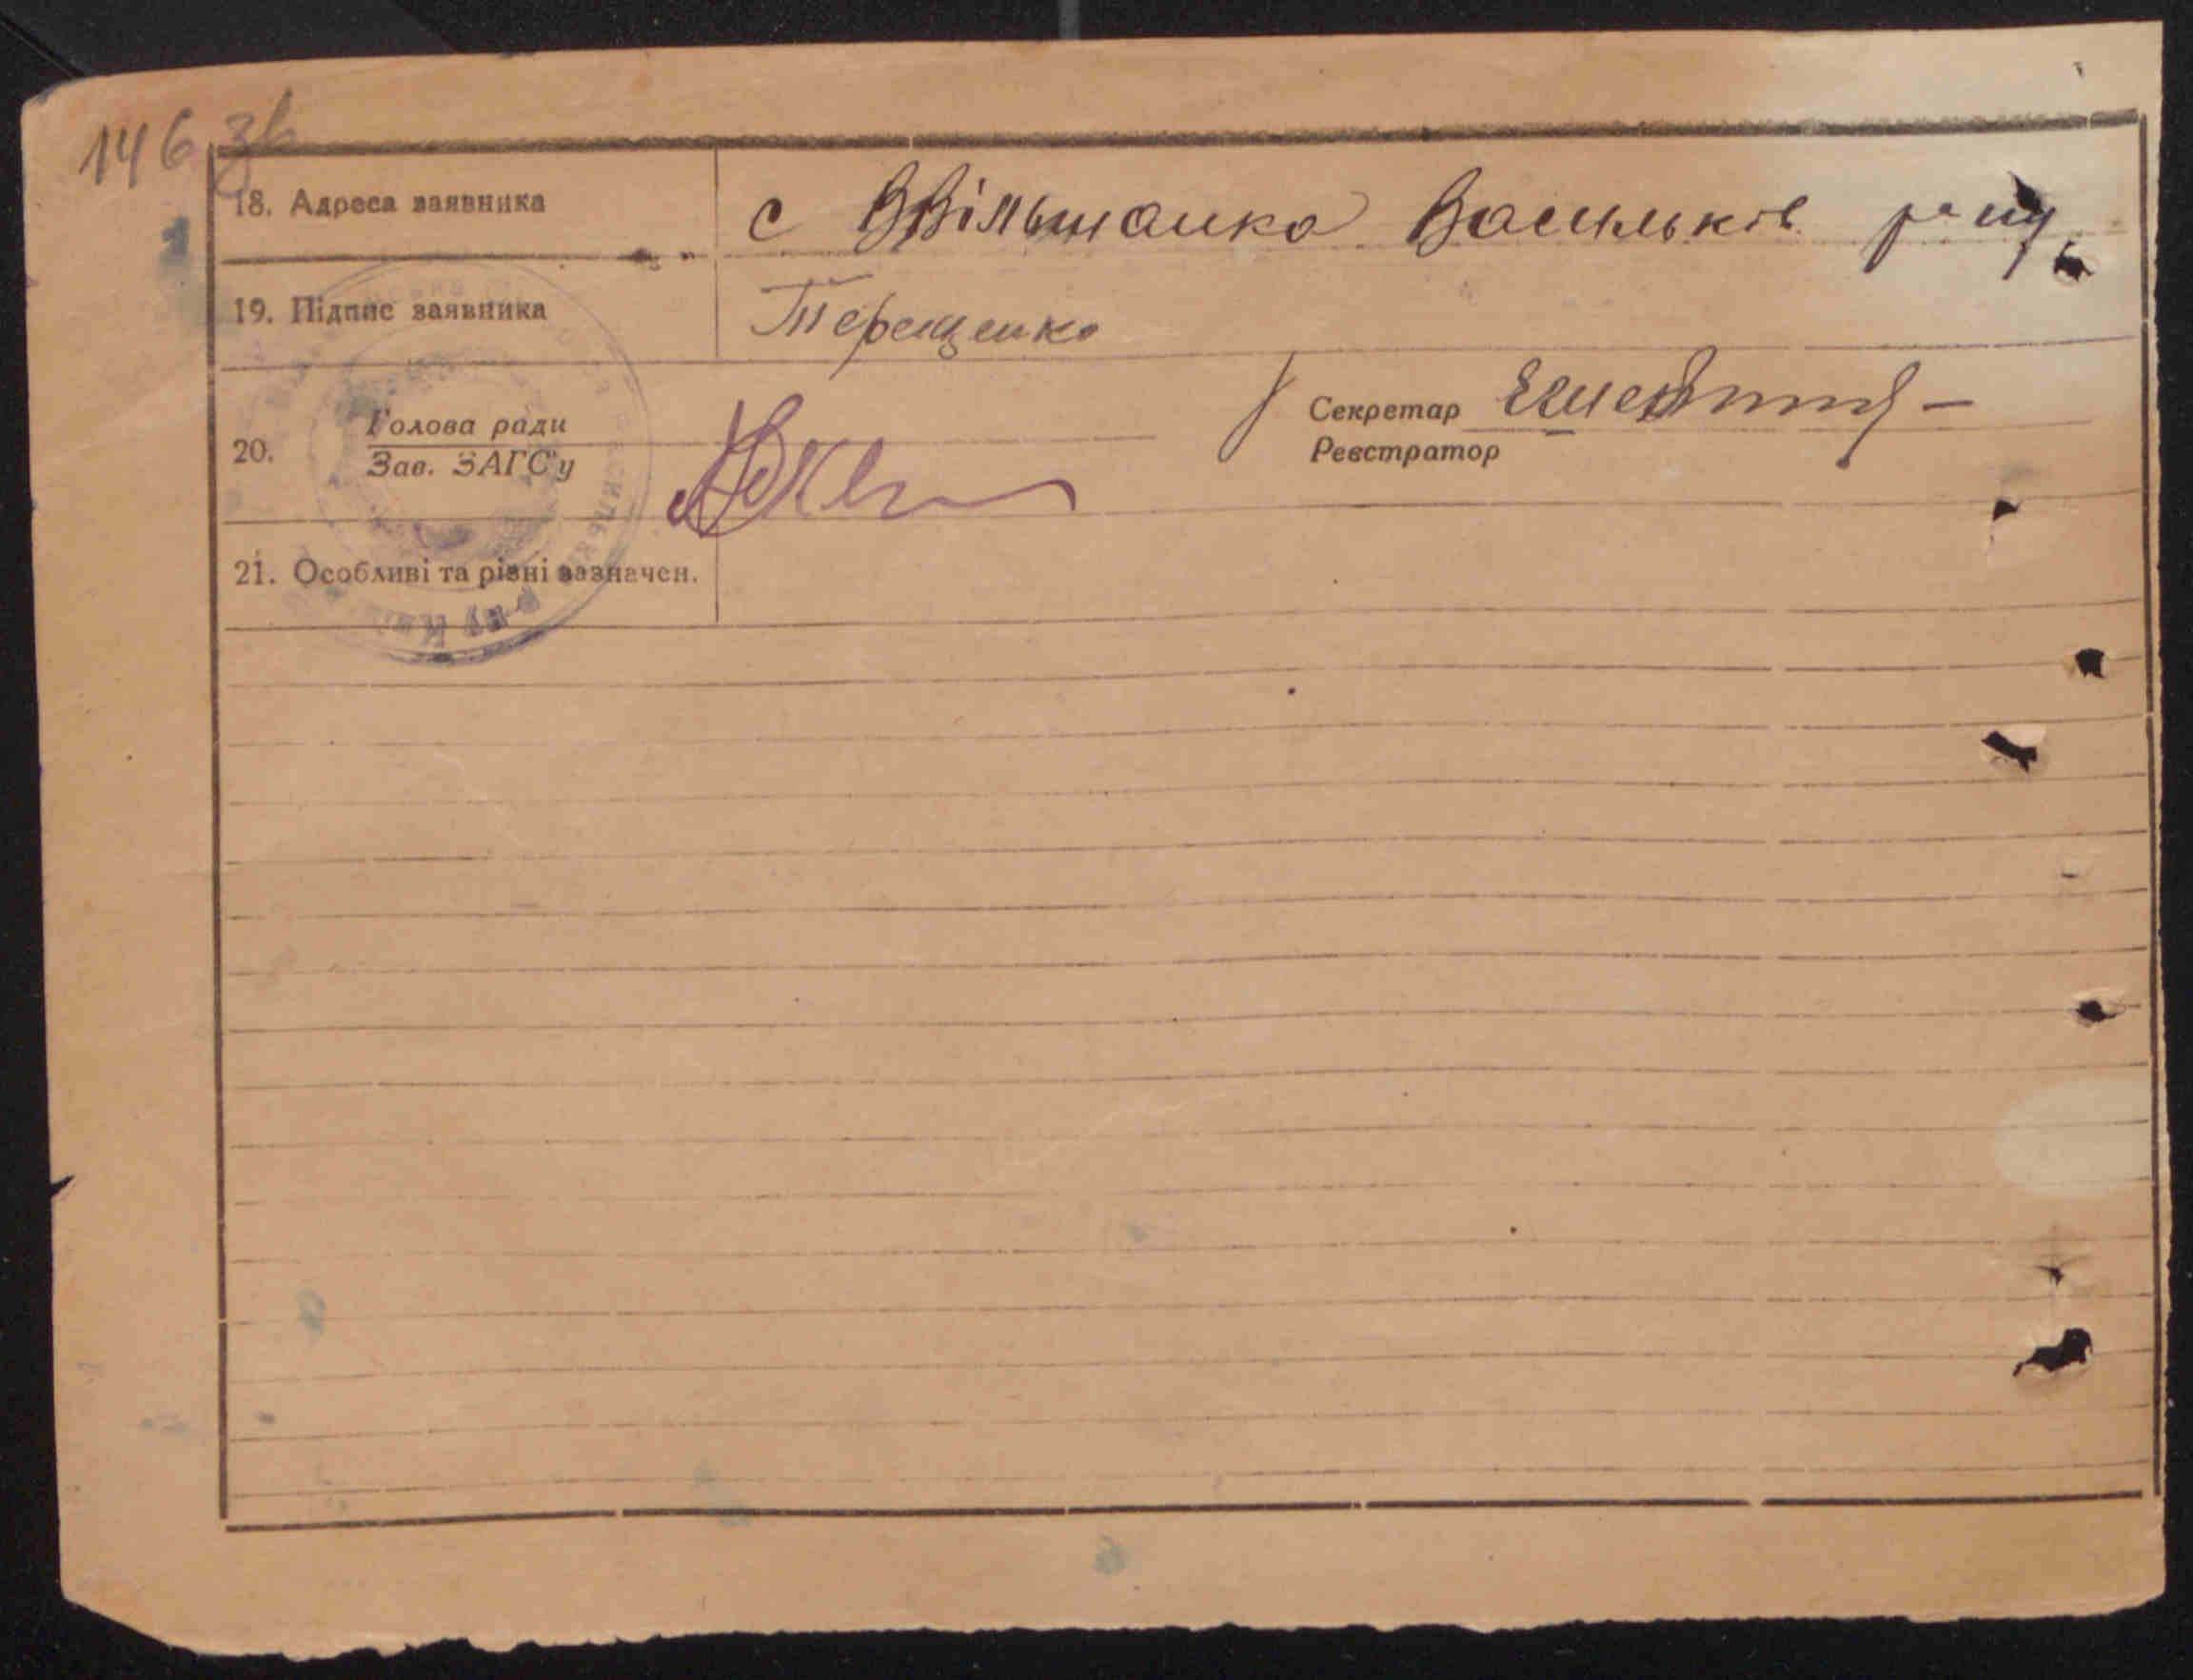 146 зв
18. Адреса заявника с ВВільшанка Васильків р-ну
19. Підпис заявника Терещенко
20. Голова ради Секретар
Зав. ЗАГС'у Реєстратор
21. Особливі та різні зазначен.